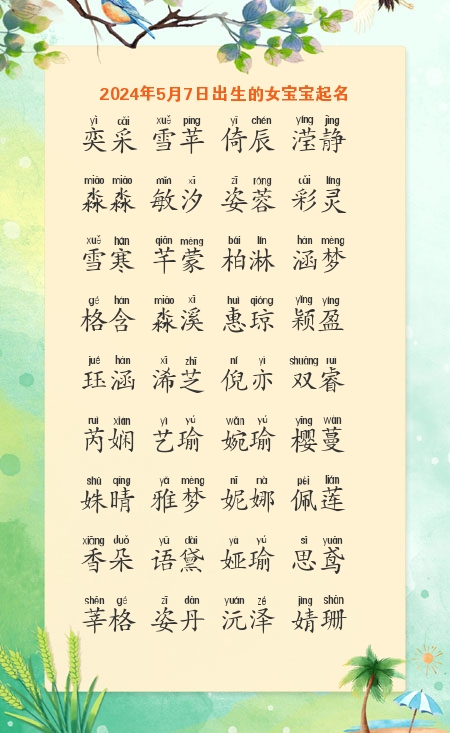 2024年5月7日出生的女宝宝起名
yì cǎi xuě píng yǐ chén yíng jìng
奕采 雪苹 倚辰 滢静
miǎo miǎo mǐn xī zī róng cǎi líng
淼淼 敏汐 姿蓉 彩灵
xuě hán qiān méng bǎi lín hán mèng
雪寒 芊蒙 柏淋 涵梦
gé hán miǎo xī huì qióng yǐng yíng
格含 淼溪 惠琼 颖盈
jué hán xī zhī ní yì shuāng ruì
珏涵 浠芝 倪亦 双睿
ruì xián yì yú wǎn yú yīng wàn
芮娴 艺瑜 婉瑜 樱蔓
shū qíng yǎ mèng nī nà pèi lián
姝晴 雅梦 妮娜 佩莲
xiāng duǒ yǔ dài yà yú sī yuān
香朵 语黛 娅瑜 思鸢
shēn gé zī dān yuán zé jìng shān
莘格 姿丹 沅泽 婧珊